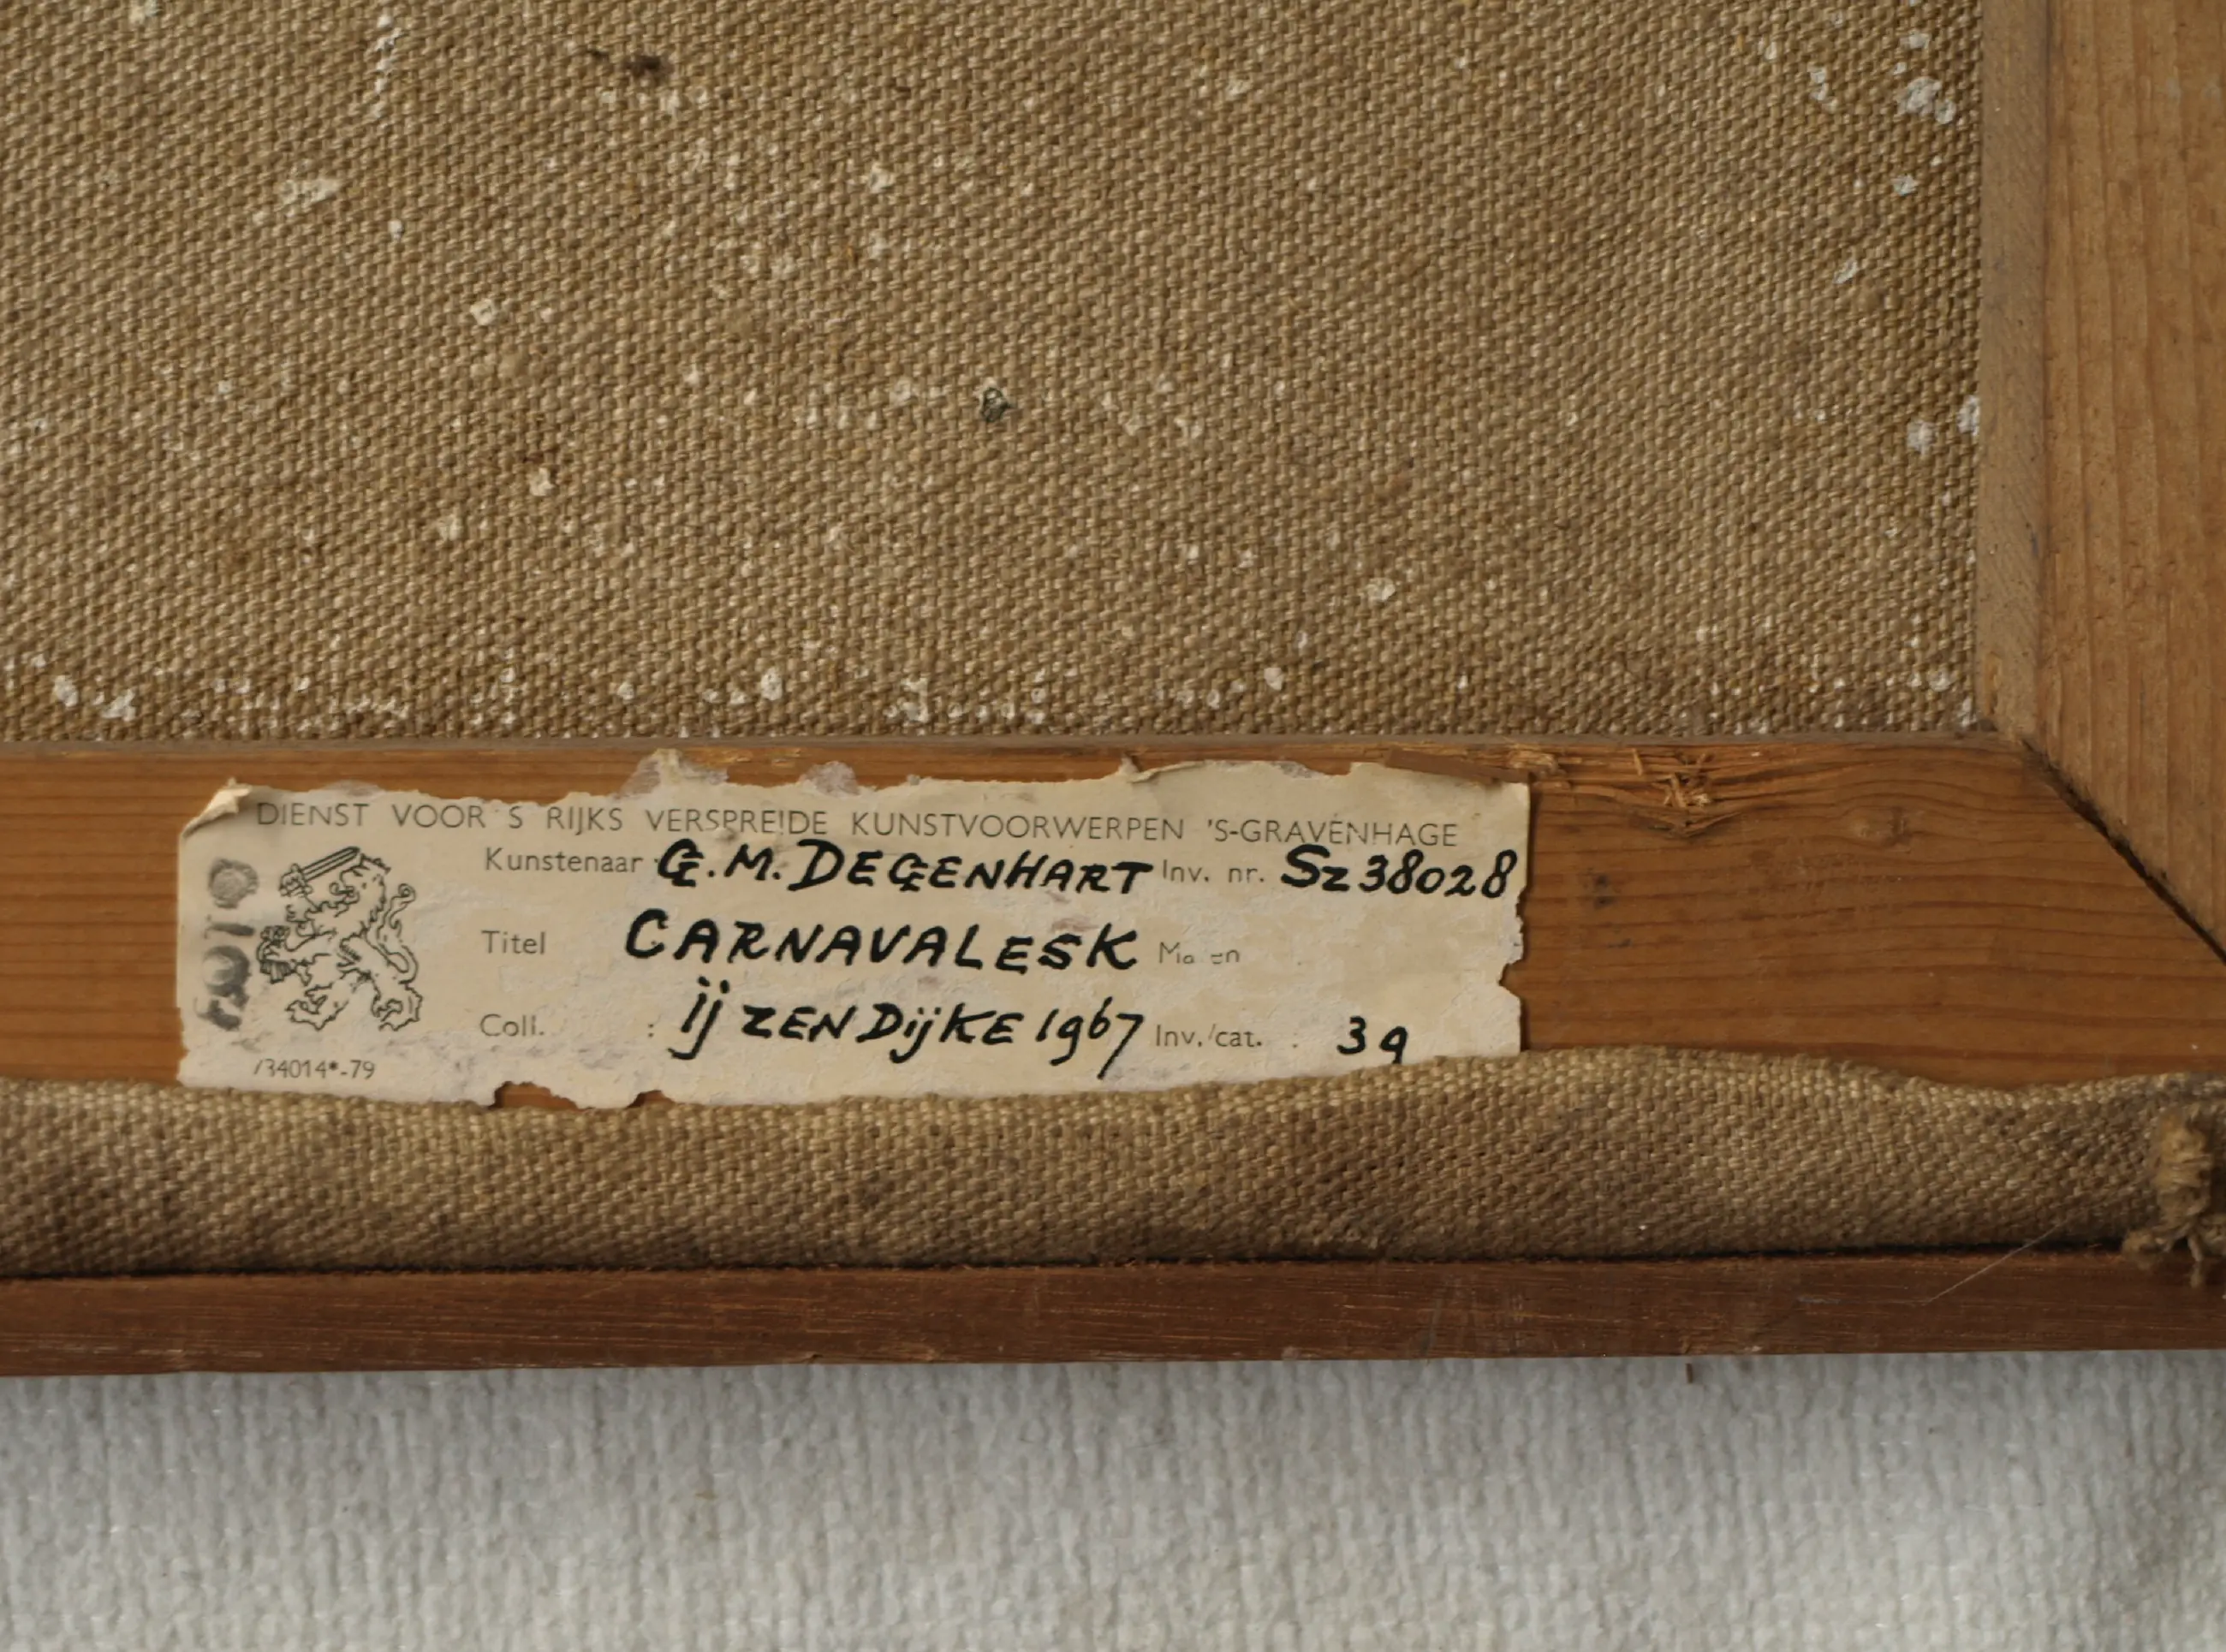 DIENST VOOR 'S RIJKS VERSPREIDE KUNSTVOORWERPEN 'S-GRAVENHAGE
Kunstenaar G.M. DEGENHART Inv. nr. Sz38028
Titel CARNAVALESK
Coll. : ijZENDijKE 1967 Inv./cat. : 39
34014*-79
FOTO